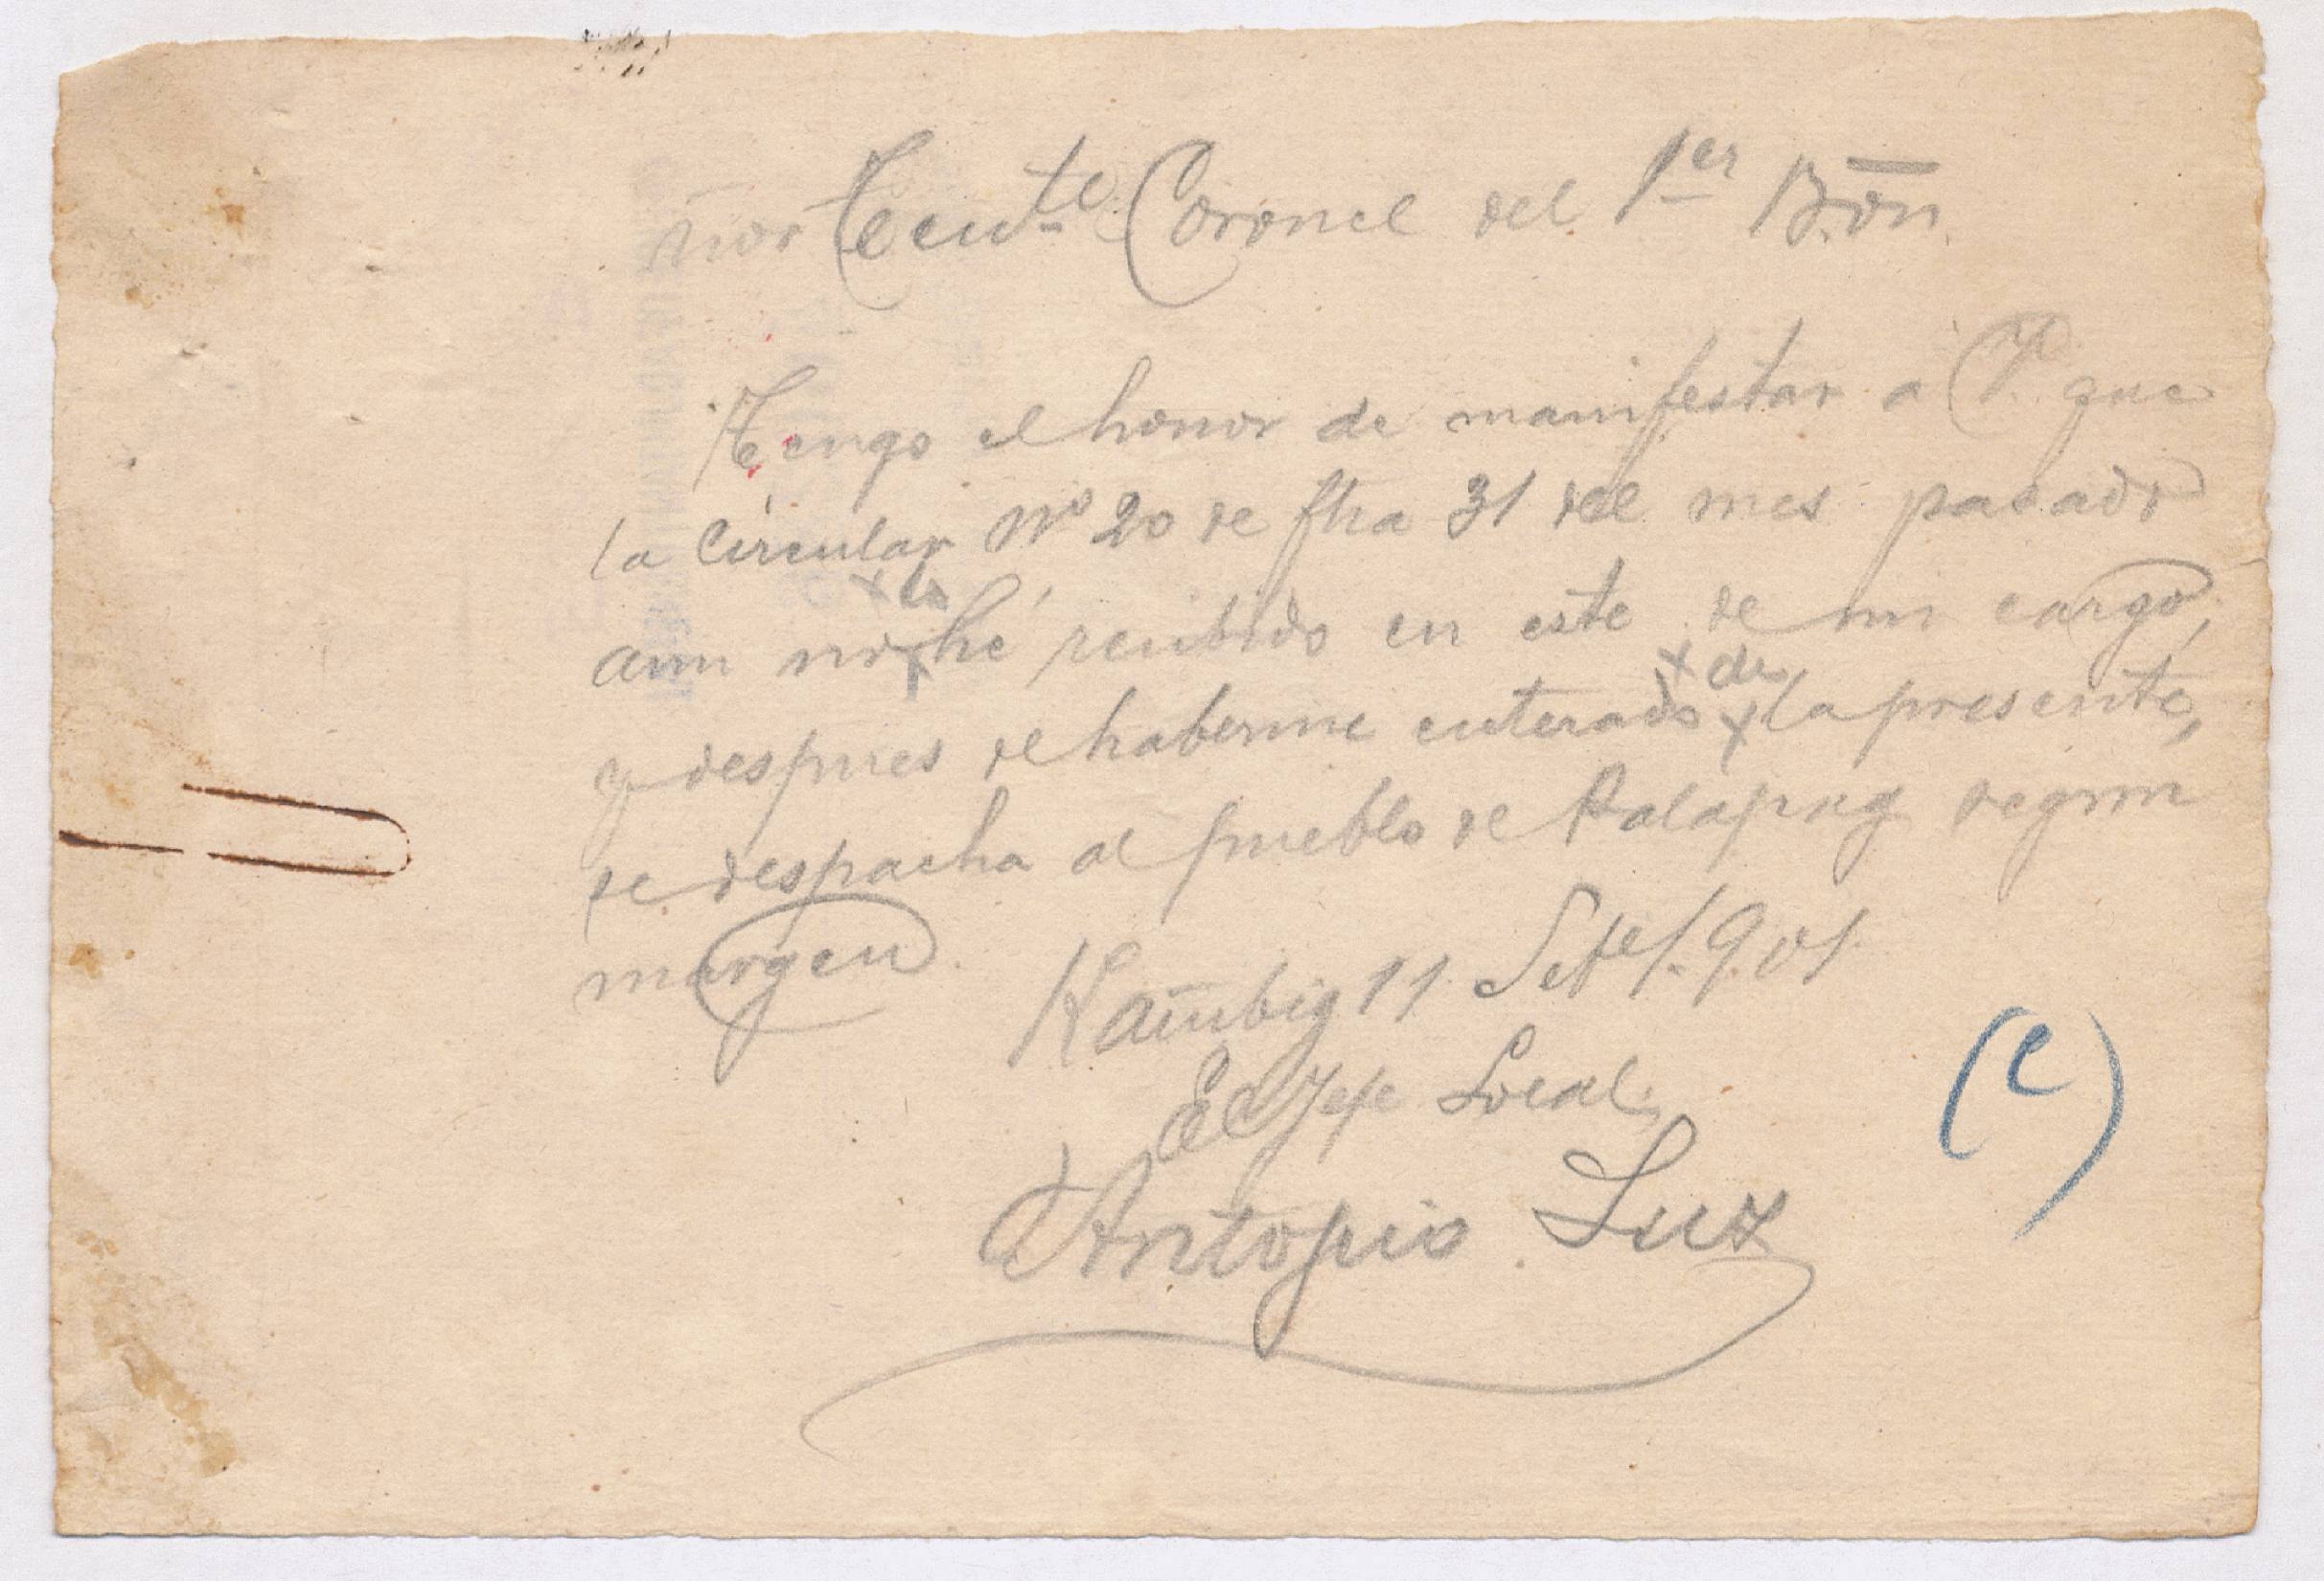 ñor Tente Coronel del 1er Bon.
Tengo el honor de manifestar a V. que
la Circular No 20 de fha 31 del mes pasado
x la
aun no x hé recibido en este de mi cargo,
x de
y despues de haberme enterado x la presente,
se despacha al pueblo de Palapag segun
margen.
Kambig 11 Stbre 1.9.01.
El Jefe Local,
Antonio Luz
(c)